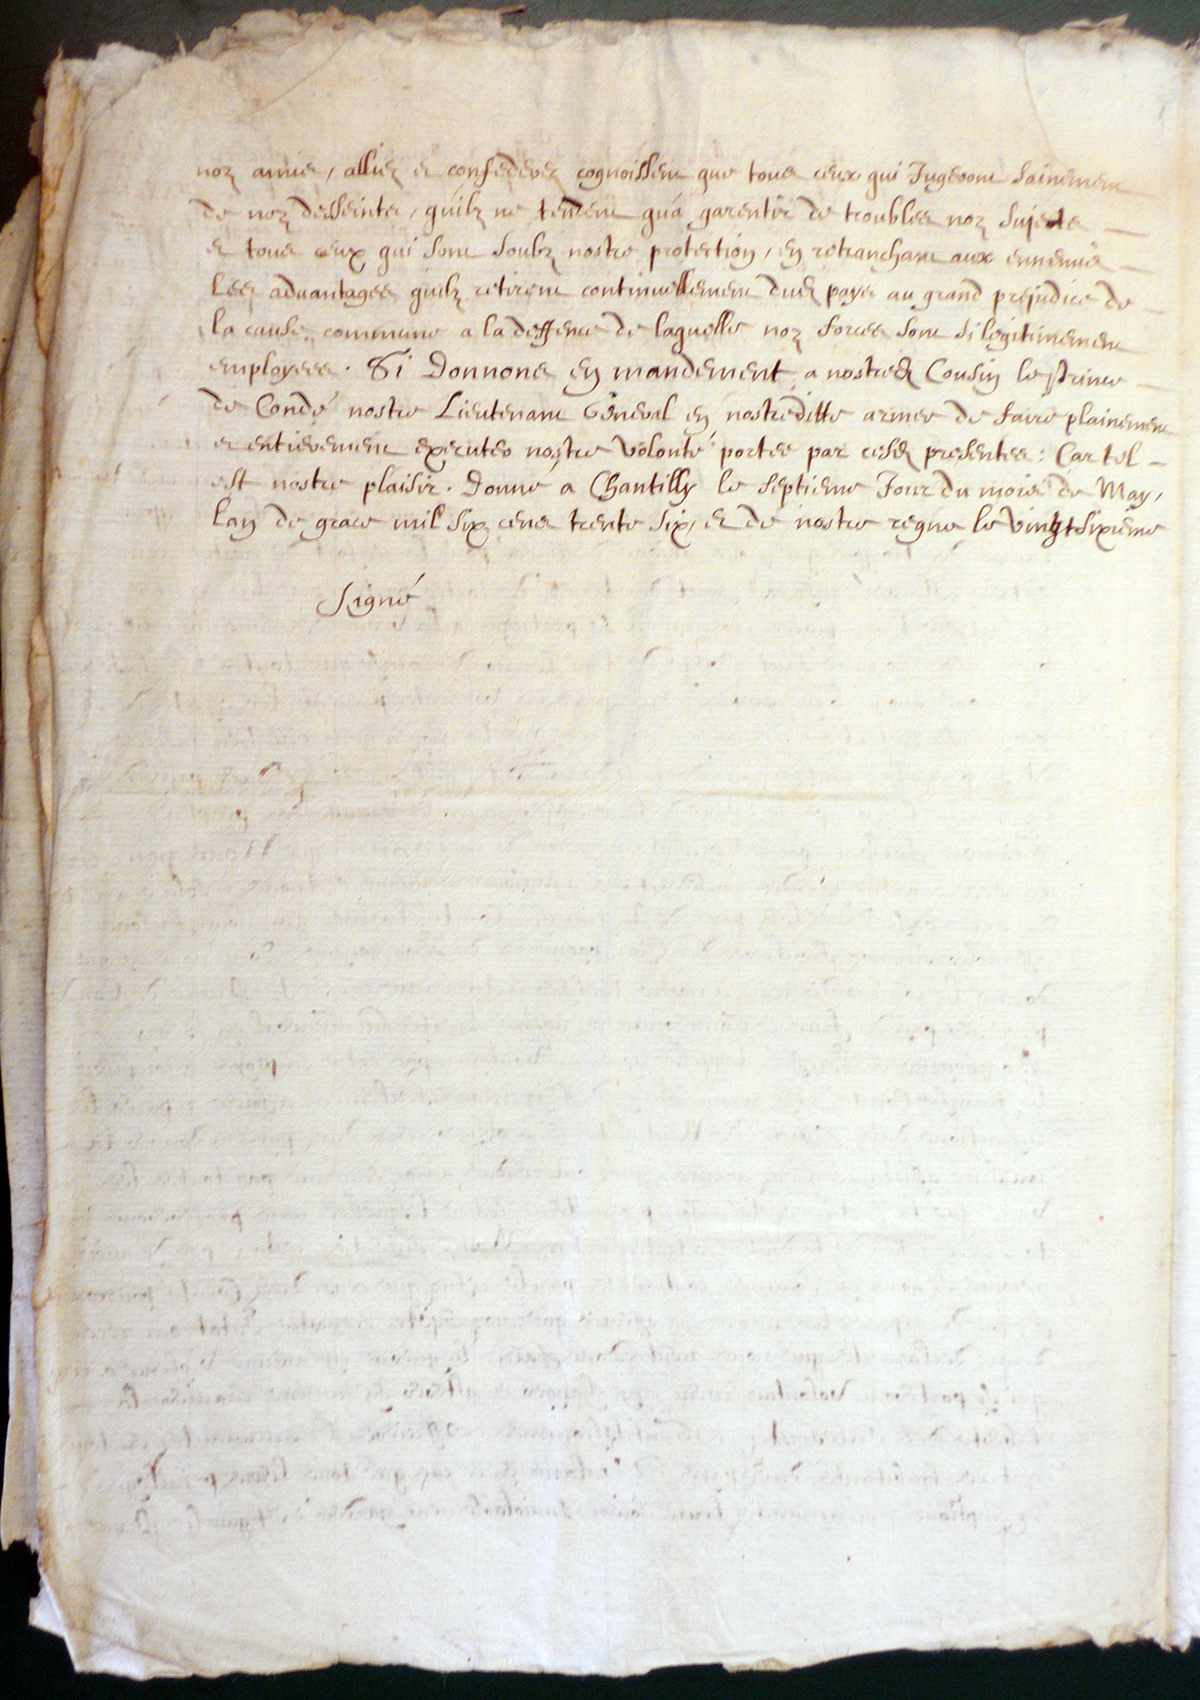 noz amis, alliez et confederez cognoissent que tous ceux qui Jugeront sainement
de noz desseintz, quilz ne tendent qu'à garentir de troubles noz sujects
et tous ceux qui sont soubz nostre protection, en retranchant aux ennemis
Les advantages quilz retirent continuellement dud. pays au grand prejudice de
la cause commune a la deffence de laquelle noz forces sont si legitimement
employees. Si Donnons en mandement a nostred. Cousin le Prince
de Condé nostre Lieutenant General en nostreditte armee de faire plainement
et entierement executer nostre volonté portee par cesd. presentes : Car tel
est nostre plaisir. Donné à Chantilly le septieme Jour du mois de May,
Lan de grace mil six cens trente six, et de nostre regne le vingtsixieme
Signé